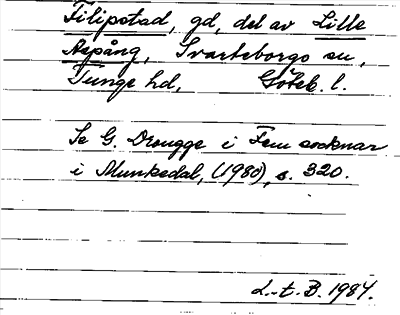 Filipstad, gd, del av Lille
Aspång, Svarteborgs sn,
Tunge hd, Göteb. l.
Se G. Drougge i Fem socknar
i Munkedal, (1980), s. 320.
L.-t. B. 1984.